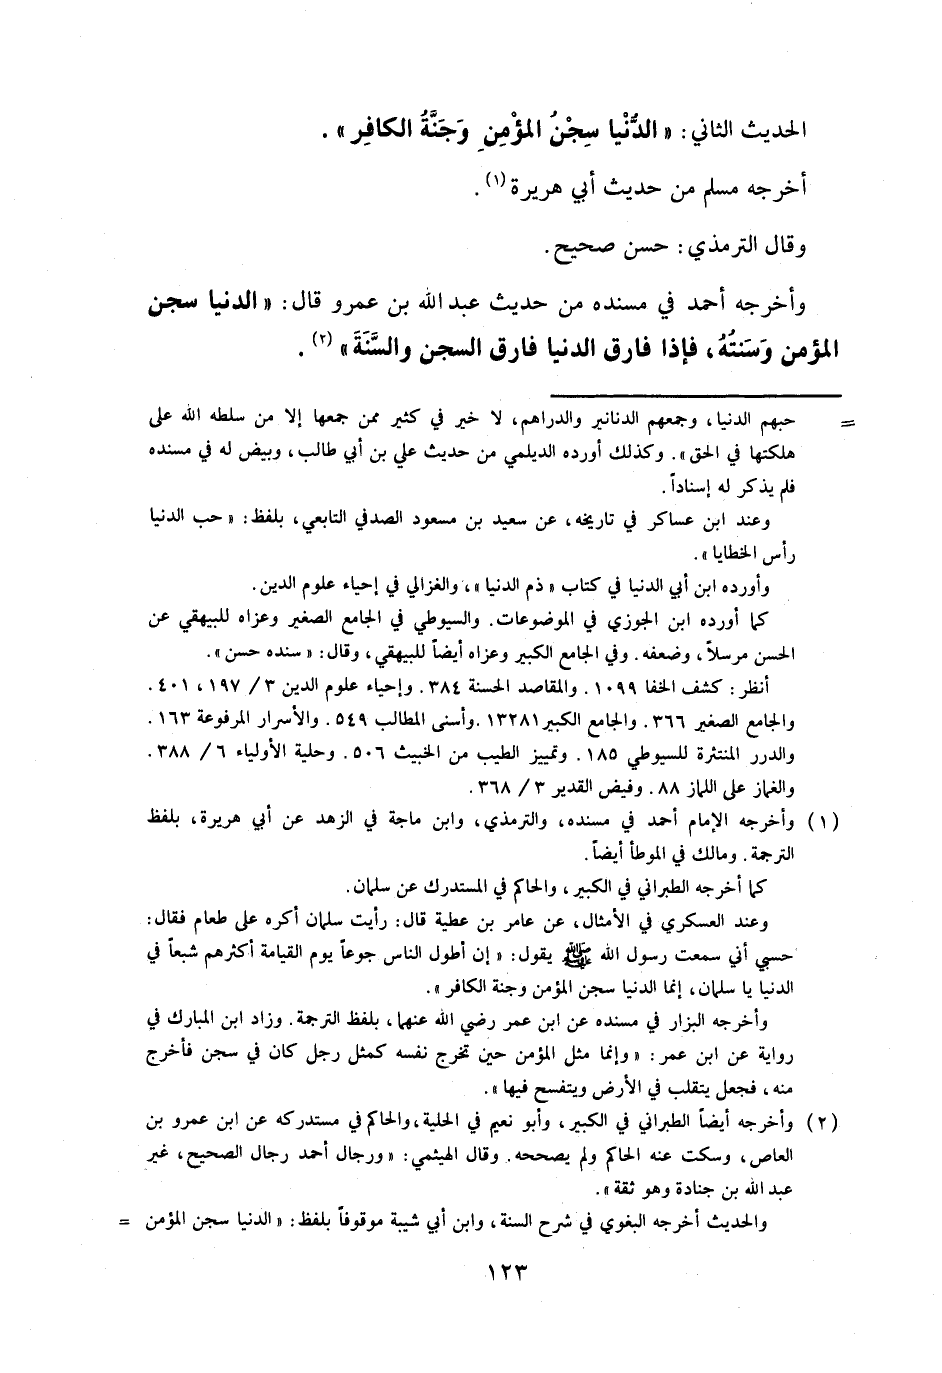 الحديث الثاني: « الدُّنْيا سِجْنُ المؤْمِنِ وَجَنَّةُ الكافِرِ » .
أخرجه مسلم من حديث أبي هريرة (١) .
وقال الترمذي: حسن صحيح.
وأخرجه أحمد في مسنده من حديث عبد الله بن عمرو قال: « الدنيا سجن
المؤمن وَسَنَتُهُ، فإذا فارق الدنيا فارق السجن والسَّنَةَ » (٢) .
= حبهم الدنيا، وجمعهم الدنانير والدراهم، لا خير في كثير ممن جمعها إلا من سلطه الله على
هلكتها في الحق ». وكذلك أورده الديلمي من حديث علي بن أبي طالب، وبيض له في مسنده
فلم يذكر له إسناداً.
وعند ابن عساكر في تاريخه، عن سعيد بن مسعود الصدفي التابعي، بلفظ: « حب الدنيا
رأس الخطايا ».
وأورده ابن أبي الدنيا في كتاب « ذم الدنيا »، والغزالي في إحياء علوم الدين.
كما أورده ابن الجوزي في الموضوعات. والسيوطي في الجامع الصغير وعزاه للبيهقي عن
الحسن مرسلاً، وضعفه. وفي الجامع الكبير وعزاه أيضاً للبيهقي، وقال: « سنده حسن ».
أنظر: كشف الخفا ١٠٩٩. والمقاصد الحسنة ٣٨٤. وإحياء علوم الدين ٣/ ١٩٧، ٤٠١.
والجامع الصغير ٣٦٦. والجامع الكبير ١٣٢٨١. وأسنى المطالب ٥٤٩. والأسرار المرفوعة ١٦٣.
والدرر المنتثرة للسيوطي ١٨٥. وتمييز الطيب من الخبيث ٥٠٦. وحلية الأولياء ٦/ ٣٨٨.
والغماز على اللماز ٨٨. وفيض القدير ٣/ ٣٦٨.
(١) وأخرجه الإمام أحمد في مسنده، والترمذي، وابن ماجة في الزهد عن أبي هريرة، بلفظ
الترجمة. ومالك في الموطأ أيضاً.
كما أخرجه الطبراني في الكبير، والحاكم في المستدرك عن سلمان.
وعند العسكري في الأمثال، عن عامر بن عطية قال: رأيت سلمان أكره على طعام فقال:
حسبي أني سمعت رسول الله ﷺ يقول: « إن أطول الناس جوعاً يوم القيامة أكثرهم شبعاً في
الدنيا يا سلمان، إنما الدنيا سجن المؤمن وجنة الكافر ».
وأخرجه البزار في مسنده عن ابن عمر رضي الله عنهما، بلفظ الترجمة. وزاد ابن المبارك في
رواية عن ابن عمر: « وإنما مثل المؤمن حين تخرج نفسه كمثل رجل كان في سجن فأخرج
منه، فجعل يتقلب في الأرض ويتفسح فيها ».
(٢) وأخرجه أيضاً الطبراني في الكبير، وأبو نعيم في الحلية، والحاكم في مستدركه عن ابن عمرو بن
العاص، وسكت عنه الحاكم ولم يصححه. وقال الهيثمي: « ورجال أحمد رجال الصحيح، غير
عبد الله بن جنادة وهو ثقة ».
والحديث أخرجه البغوي في شرح السنة، وابن أبي شيبة موقوفاً بلفظ: « الدنيا سجن المؤمن =
١٢٣